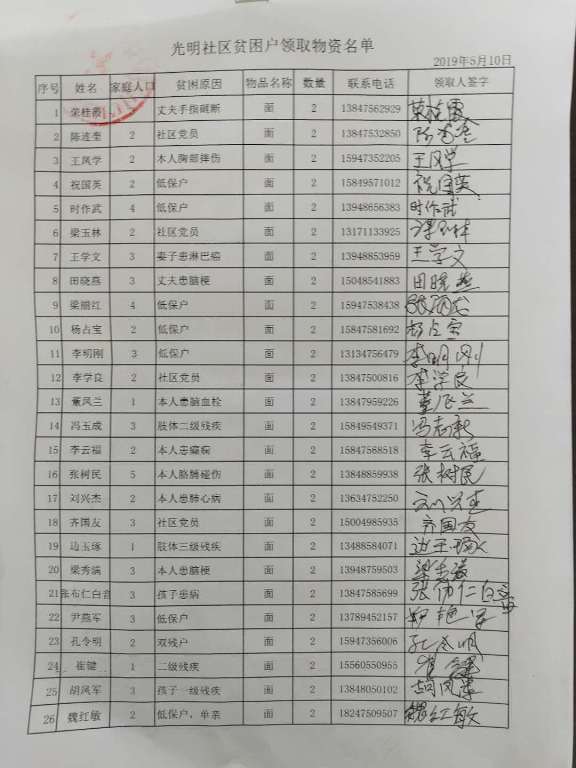 光明社区贫困户领取物资名单
2019年5月10日
序号 姓名 家庭人口 贫困原因 物品名称 数量 联系电话 领取人签字
1 荣桂霞 丈夫手指砸断 面 2 13847562929 荣桂霞
2 陈连奎 2 社区党员 面 2 13847532850 陈连奎
3 王凤学 2 本人胸部摔伤 面 2 15947352205 王凤学
4 祝国英 2 低保户 面 2 15849571012 祝国英
5 时作武 4 低保户 面 2 13948656383 时作武
6 梁玉林 2 社区党员 面 2 13171133925 梁玉林
7 王学文 3 妻子患淋巴癌 面 2 13948853959 王学文
8 田晓燕 3 丈夫患脑梗 面 2 15048541883 田晓燕
9 梁丽红 4 低保户 面 2 15947538438
10 杨占宝 2 低保户 面 2 15847581692 杨占宝
11 李明刚 3 低保户 面 2 13134756479 李明刚
12 李学良 2 社区党员 面 2 13847500816 李学良
13 董凤兰 1 本人患脑血栓 面 2 13847959226 董凤兰
14 冯玉成 3 肢体二级残疾 面 2 15849549371 冯志新
15 李云福 2 本人患癫痫 面 2 15847568518 李云福
16 张树民 5 本人胳膊碰伤 面 2 13848859938 张树民
17 刘兴杰 2 本人患肺心病 面 2 13634752250 刘兴杰
18 齐国友 3 社区党员 面 2 15004985935 齐国友
19 边玉琢 1 肢体三级残疾 面 2 13488584071 边玉琢
20 梁秀满 3 本人患脑梗 面 2 13948759503
21 张布仁白音 3 孩子患病 面 2 13847585699 张布仁白音
22 尹燕军 3 低保户 面 2 13789452157
23 孔令明 2 双残户 面 2 15947356006 孔令明
24 崔键 1 二级残疾 面 2 15560550955 崔键
25 胡凤军 3 孩子一级残疾 面 2 13848050102
26 魏红敏 2 低保户、单亲 面 2 18247509507 魏红敏